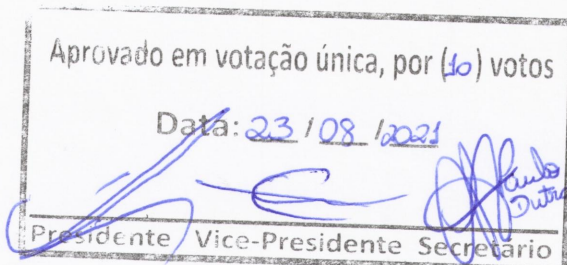 Aprovado em votação única, por (10) votos
Data: 23 / 08 / 2021
Paulo
Dutra
Presidente Vice-Presidente Secretário